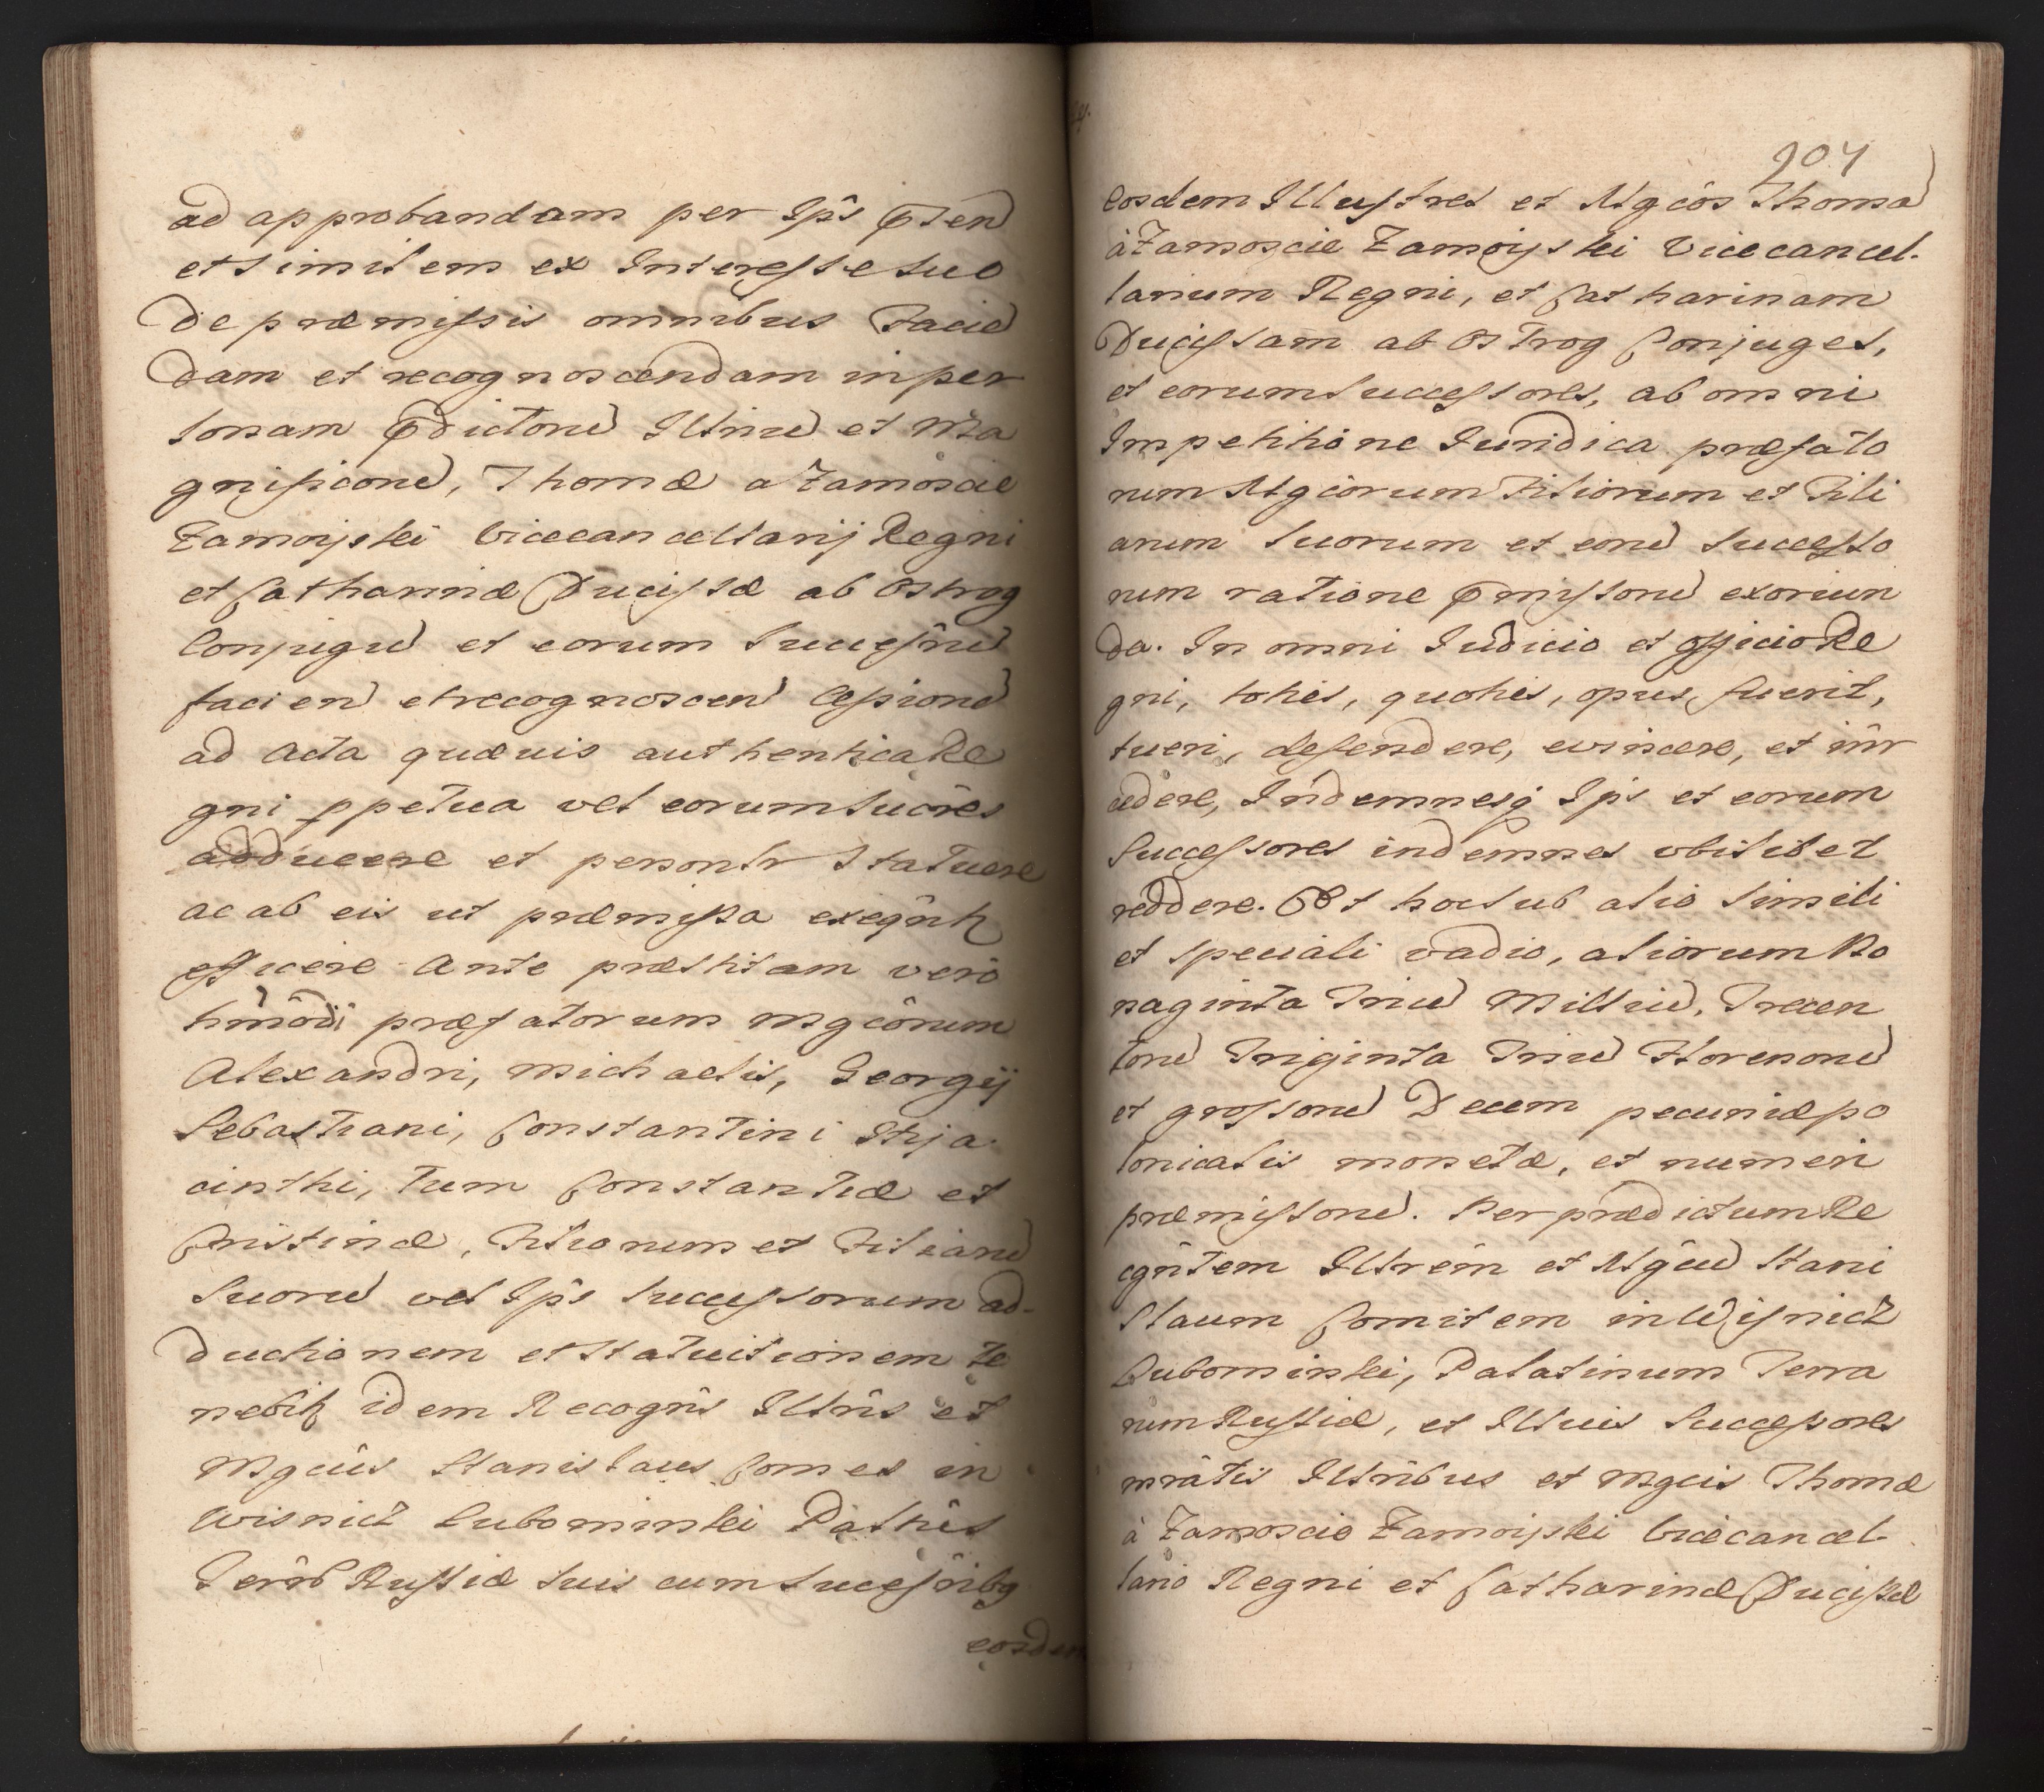 ad approbandam per Ips pñten
et similem ex Interesse suo
de præmissis omnibus Facie
dam et recognoscendam in per
sonam pdictoru Illriu et Ma
gnificoru, Thomæ a Zamoscie
Zamoyski Vicecancellarij Regni
et Catharinæ Ducissæ ab Ostrog
Conjugu et eorum Succesñru
facien et recognoscen Cessione
ad Acta quævis authentica Re
gni ppetua vel eorum Sucôres
adducere et personlr Statuere
ac ab eis ut præmissa exeqñtr
efficere Ante præstitam vero
hmõdi præfatorum Mgcôrum
Alexandri, Michaelis, Georgij
Sebastiani, Constantini Hija
cinthi, Tum Constantiæ et
Cristinæ, Filiorum et Filiaru
Suoru vel Ips Successorum ad-
ductionem et Statuitionem te
nebitr idem Recogñs Illris et
Mgcus Stanislaus Comes in
Wisnicz Lubomirski Patñes
Terrar Russiæ suis cum Succesñribq
eosdem
904
eosdem Illustres et Mgcôs Thoma
à Zamoscie Zamoyski Vicecancel-
larium Regni, et Catharinam
Ducissam ab Ostrog Conjuges,
et eorum Successores, ab omni
Impetitione Juridica præfato
rum Mgcorum Filiorum et Fili
arum Suorum et eoru Successo
rum ratione pmissoru exoriun
da. In omni Judicio et officio Re
gni, toties, quoties, opus fuerit,
tueri, defendere, evincere, et inr
cedere, Indemnesq Ips et eorum
Successores indemnes ubilibet
reddere. Et hoc sub alio simili
et speciali vadio, aliorum No
naginta Triu Milliu, Trecen
toru Triginta Triu Florenoru
et grossoru Decem pecuniæ po
lonicalis monetæ, et numeri
præmissoru. Per prædictum Re
cgñtem Illrem et Mgcu Stani
slaum Comitem in Wisnicz
Lubomirski, Palatinum Terra
rum Russiæ, et Illius Successores
mrâtis Illribus et Mgcis Thomæ
à Zamoscie Zamoyski Vicecancel-
lario Regni et Catharinæ Ducissæ